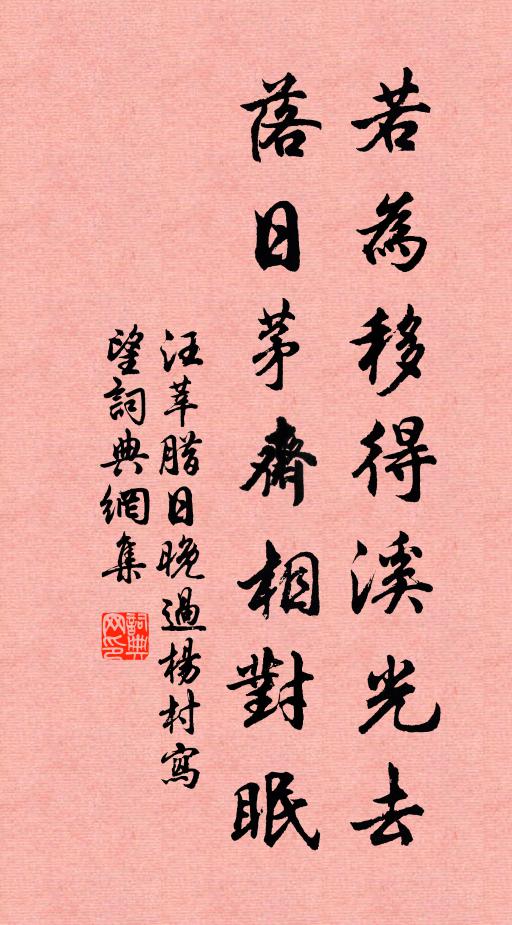 若為移得溪光去
落日茅齋相對眠
汪莘腊日晚過楊村寫
望詞典網集
詞典
网印